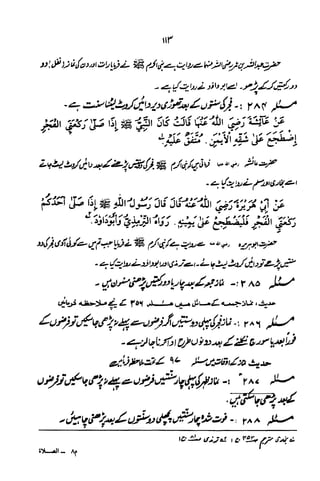 ۱۱۳
حضرت عبداللہ بن عمر رضی اللہ عنہما سے روایت ہے نبی اکرم ﷺ نے فرمایا رات اور دن کی نماز (نفل) دو
دو رکعتیں کر کے پڑھو۔ اسے ابو داؤد نے روایت کیا ہے۔
مسئلہ ۲۸۴ :- فجر کی سنتوں کے بعد تھوڑی دیر دائیں کروٹ لیٹنا سنت ہے۔
عَنْ عَائِشَةَ رَضِيَ اللهُ عَنْهَا قَالَتْ كَانَ النَّبِيُّ ﷺ إِذَا صَلَّى رَكْعَتَيِ الْفَجْرِ
إِضْطَجَعَ عَلَى شِقِّهِ الْأَيْمَنِ. مُتَّفَقٌ عَلَيْهِ
حضرت عائشہ فرماتی ہیں کہ نبی اکرم ﷺ فجر کی سنتیں پڑھنے کے بعد دائیں کروٹ لیٹ جاتے
اسے بخاری اور مسلم نے روایت کیا ہے۔
عَنْ أَبِي هُرَيْرَةَ رَضِيَ اللهُ عَنْهُ قَالَ قَالَ رَسُولُ اللهِ ﷺ إِذَا صَلَّى أَحَدُكُمْ
رَكْعَتَيِ الْفَجْرِ فَلْيَضْطَجِعْ عَلَى يَمِيْنِهِ. رَوَاهُ التِّرْمِذِيُّ وَأَبُوْدَاوُدَ.
حضرت ابو ہریرہ سے روایت ہے کہ نبی اکرم ﷺ نے فرمایا جب تم میں سے کوئی آدمی فجر کی دو
سنتیں پڑھے تو دائیں کروٹ لیٹ جائے۔ اسے ترمذی اور ابو داؤد نے روایت کیا ہے۔
مسئلہ ۲۸۵ :- نماز جمعہ کے بعد چار یا دو رکعتیں پڑھنی مسنون ہیں۔
حدیث، نماز جمعہ کے مسائل میں مسئلہ ۳۵۶ کے نیچے ملاحظہ فرمائیں
مسئلہ ۲۸۶ :- نماز فجر کی پہلی دو سنتیں اگر فرضوں سے پہلے نہ پڑھی جا سکیں تو فرضوں کے
فوراً بعد یا سورج نکلنے کے بعد دونوں طرح ادا کرنا جائز ہے۔
حدیث مسئلہ ۹۷ کے تحت ملاحظہ فرمائیے
مسئلہ ۲۸۷ :- نماز ظہر کی پہلی چار سنتیں فرضوں سے پہلے نہ پڑھی جا سکیں تو فرضوں
کے بعد پڑھی جا سکتی ہیں۔
مسئلہ ۲۸۸ :- فوت شدہ چار سنتیں پچھلی دو سنتوں کے بعد پڑھنی چاہئیں۔
۸ - الصلاة